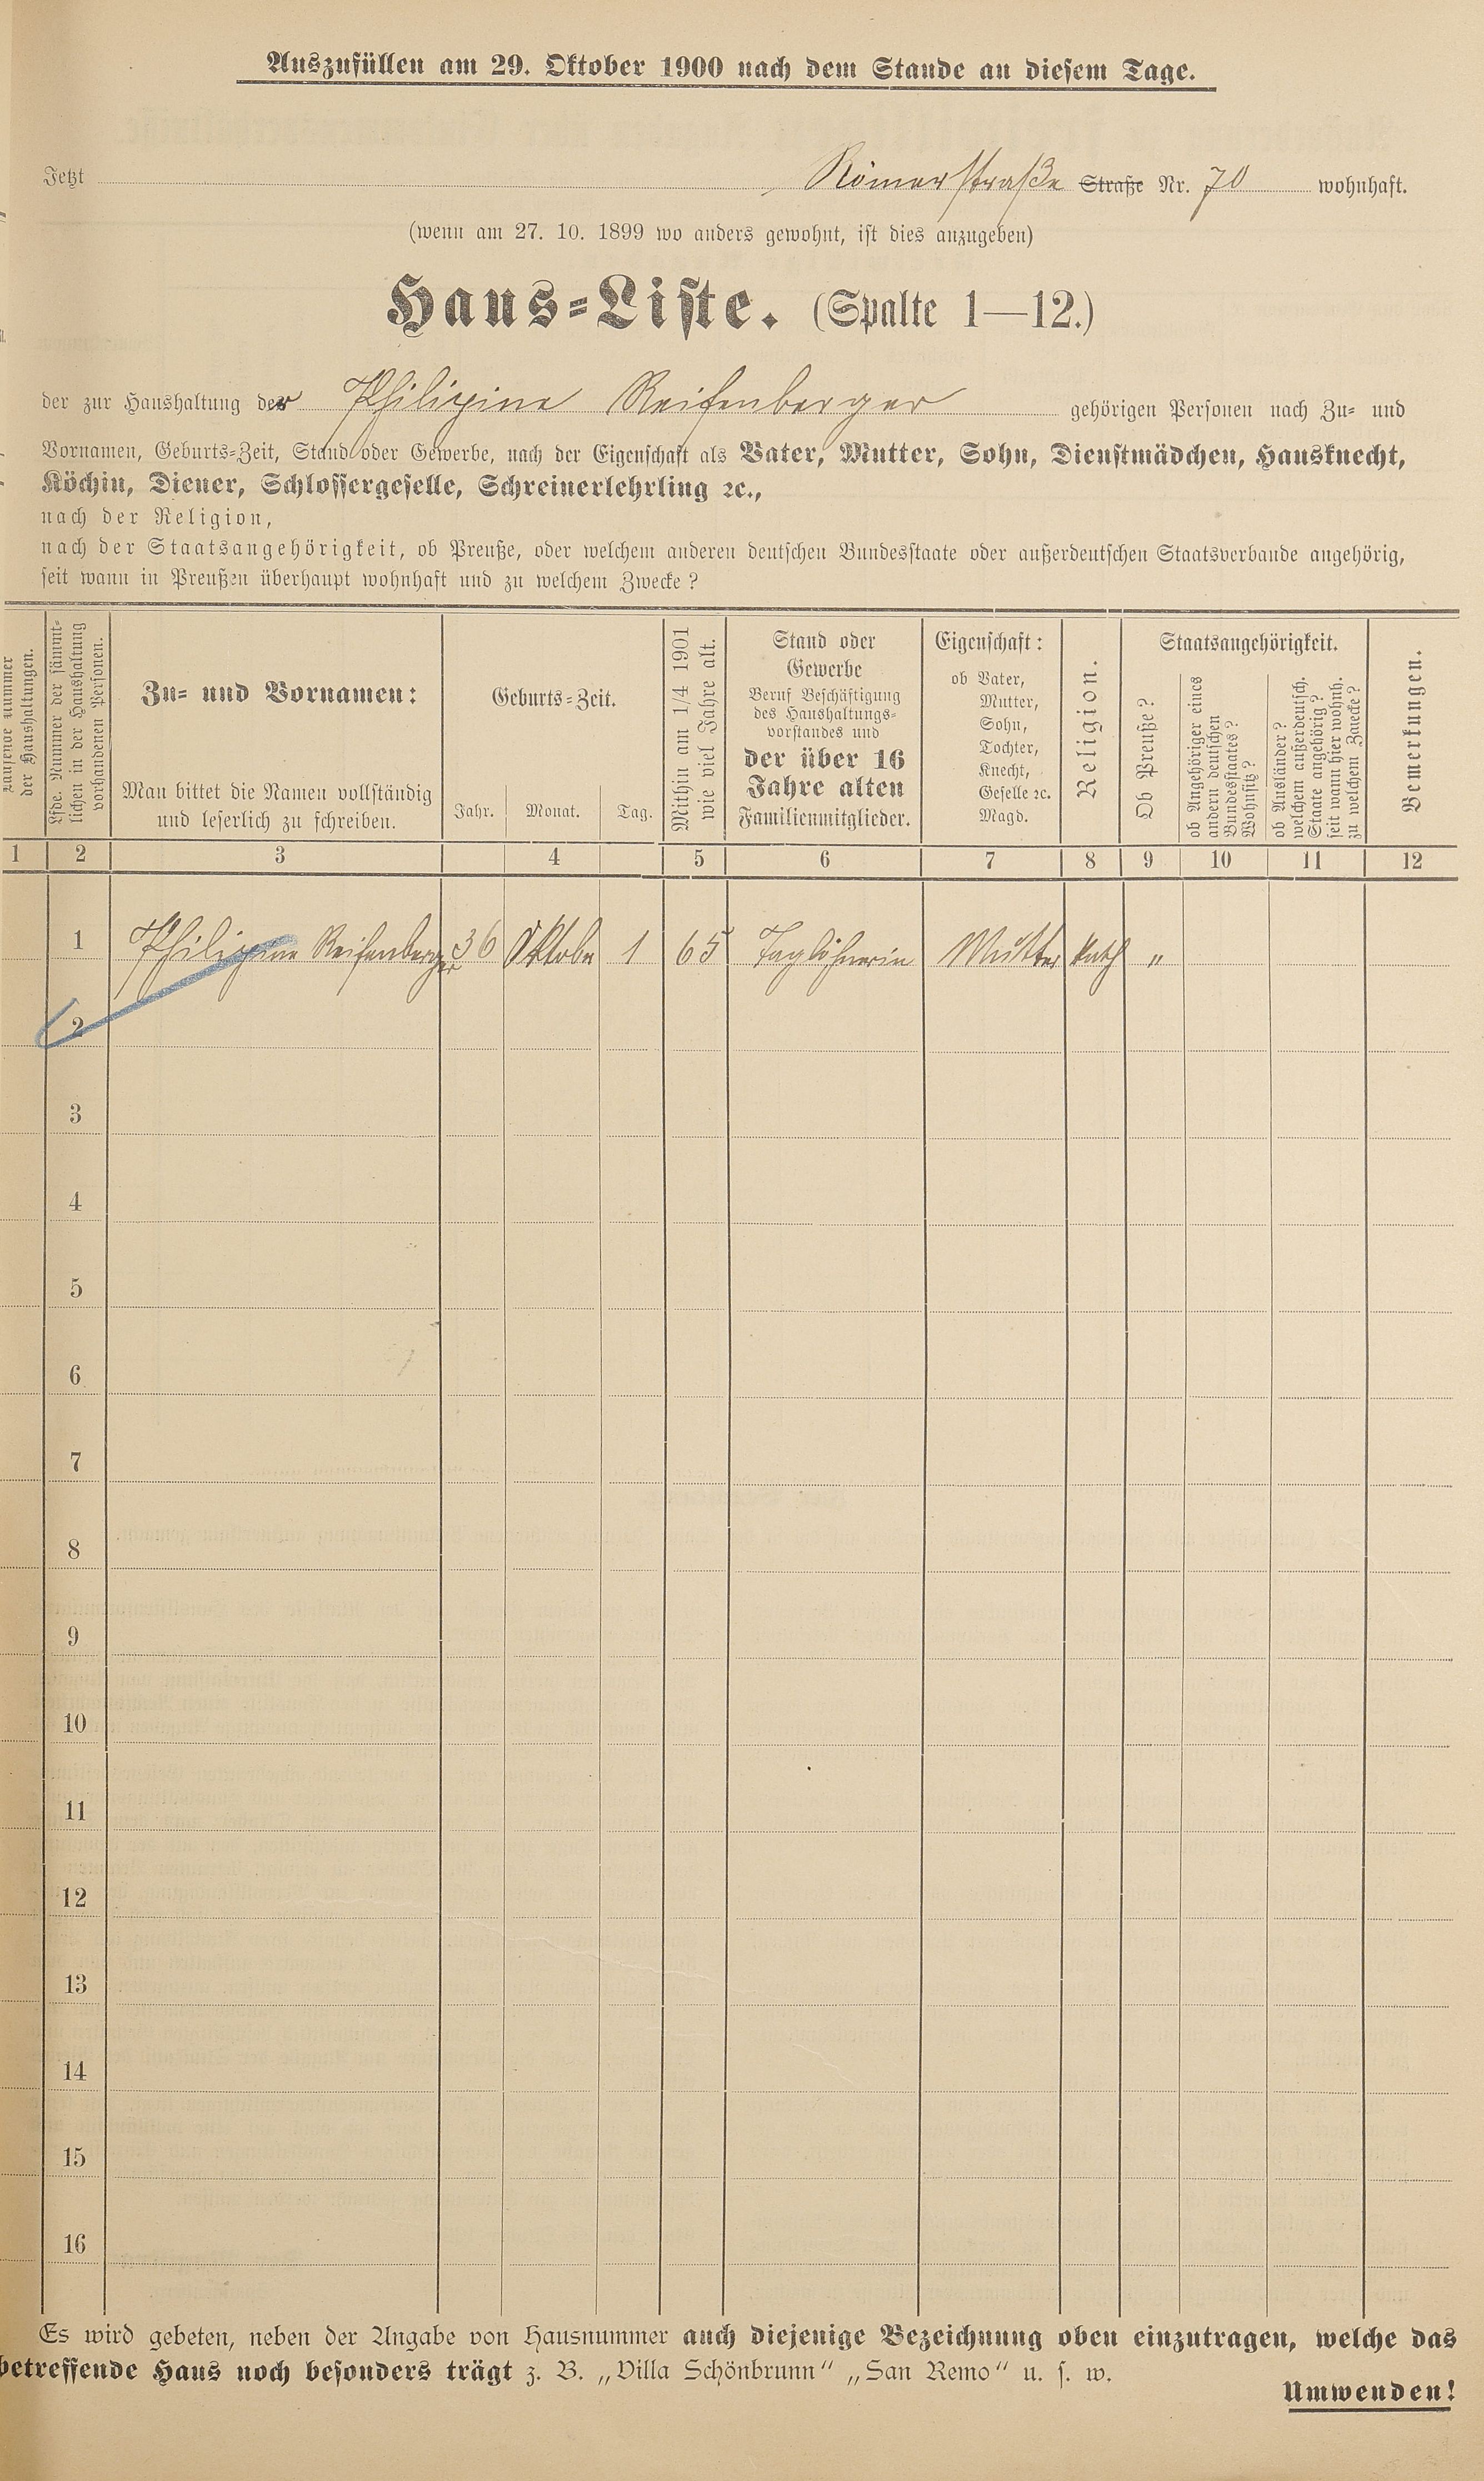 Auszufüllen am 29. Oktober 1900 nach dem Stande an diesem Tage.
Jetzt Römerstraße Straße Nr. 70 wohnhaft.
(wenn am 27. 10. 1899 wo anders gewohnt, ist dies anzugeben)
Haus-Liste. (Spalte 1—12.)
der zur Haushaltung der Philipine Reifenberger gehörigen Personen nach Zu- und
Vornamen, Geburts-Zeit, Stand oder Gewerbe, nach der Eigenschaft als Vater, Mutter, Sohn, Dienstmädchen, Hausknecht,
Köchin, Diener, Schlossergeselle, Schreinerlehrling ꝛc.,
nach der Religion,
nach der Staatsangehörigkeit, ob Preuße, oder welchem anderen deutschen Bundesstaate oder außerdeutschen Staatsverbande angehörig,
seit wann in Preußen überhaupt wohnhaft und zu welchem Zwecke?
Laufende Nummer
der Haushaltungen.
Lfde. Nummer der sämmt-
lichen in der Haushaltung
vorhandenen Personen.
Zu- und Vornamen:
Man bittet die Namen vollständig
und leserlich zu schreiben.
Geburts-Zeit.
Jahr. Monat. Tag.
Mithin am 1/4 1901
wie viel Jahre alt.
Stand oder
Gewerbe
Beruf Beschäftigung
des Haushaltungs-
vorstandes und
der über 16
Jahre alten
Familienmitglieder.
Eigenschaft:
ob Vater,
Mutter,
Sohn,
Tochter,
Knecht,
Geselle ꝛc.
Magd.
Religion.
Staatsangehörigkeit.
Ob Preuße?
ob Angehöriger eines
andern deutschen
Bundesstaates?
Wohnsitz?
ob Ausländer?
welchem außerdeutsch.
Staate angehörig?
seit wann hier wohnh.
zu welchem Zwecke?
Bemerkungen.
1 2 3 4 5 6 7 8 9 10 11 12
1 Philipine Reifenberger 36 Oktober 1 65 Taglöhnerin Mutter kath "
2
3
4
5
6
7
8
9
10
11
12
13
14
15
16
Es wird gebeten, neben der Angabe von Hausnummer auch diejenige Bezeichnung oben einzutragen, welche das
betreffende Haus noch besonders trägt z. B. „Villa Schönbrunn" „San Remo" u. s. w.
Umwenden!